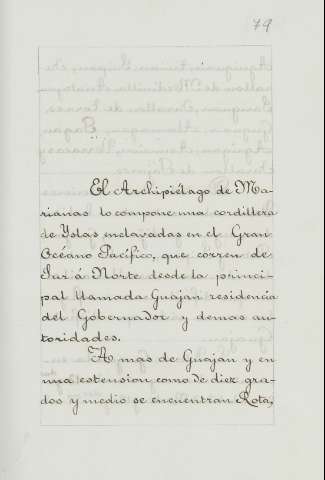 79
El Archipiélago de Ma-
rianas lo compone una cordillera
de Yslas enclavadas en el Gran
Océano Pacífico, que corren de
Sur á Norte desde la princi-
pal llamada Guajan residencia
del Gobernador y demas au-
toridades.
A mas de Guajan y en
una estension como de diez gra-
dos y medio se encuentran Rota,